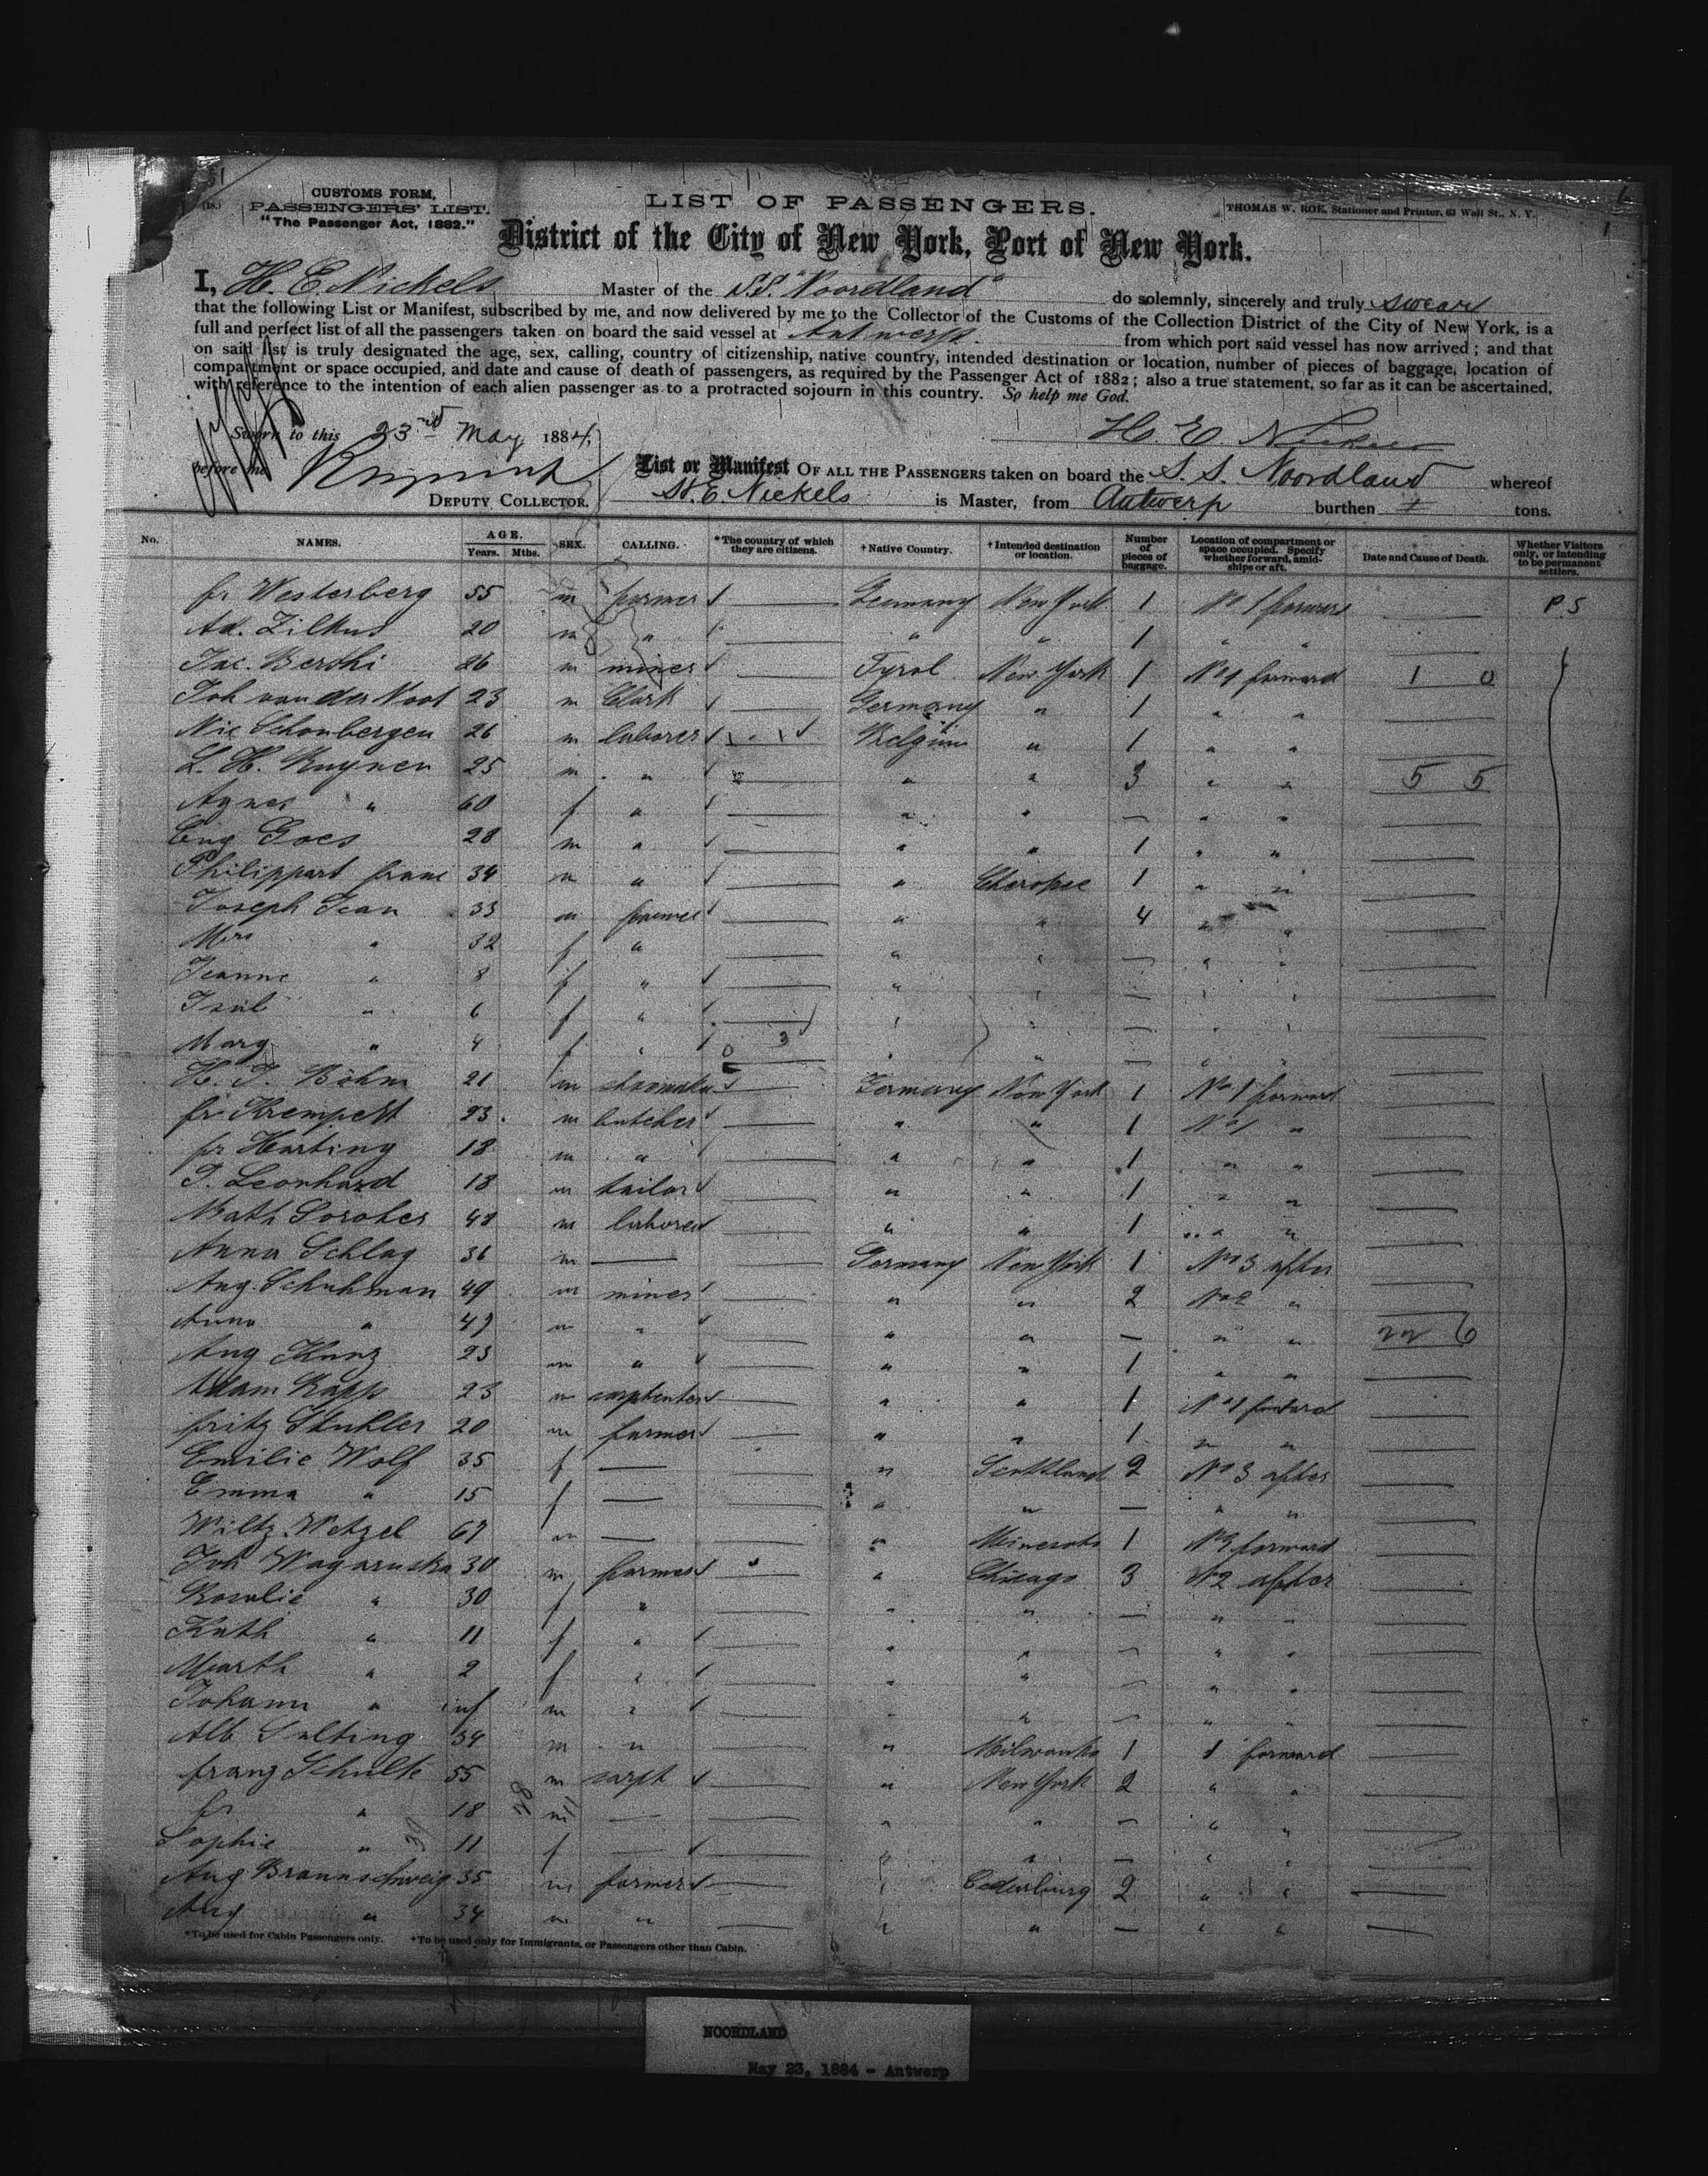 51
CUSTOMS FORM.
PASSENGERS' LIST.
"The Passenger Act, 1882."
LIST OF PASSENGERS.
THOMAS W. ROE, Stationer and Printer, 63 Wall St., N. Y.
District of the City of New York, Port of New York.
I, H. E. Nickels Master of the S.S. "Noordland" do solemnly, sincerely and truly swear
that the following List or Manifest, subscribed by me, and now delivered by me to the Collector of the Customs of the Collection District of the City of New York, is a
full and perfect list of all the passengers taken on board the said vessel at Antwerp. from which port said vessel has now arrived; and that
on said list is truly designated the age, sex, calling, country of citizenship, native country, intended destination or location, number of pieces of baggage, location of
compartment or space occupied, and date and cause of death of passengers, as required by the Passenger Act of 1882; also a true statement, so far as it can be ascertained,
with reference to the intention of each alien passenger as to a protracted sojourn in this country. So help me God.
Sworn to this 23rd May 1884, H. E. Nickels
before me
DEPUTY COLLECTOR.
List or Manifest OF ALL THE PASSENGERS taken on board the S. S. Noordland whereof
H. E. Nickels is Master, from Antwerp burthen tons.
No. NAMES. AGE. Years. Mths. SEX. CALLING. *The country of which they are citizens. †Native Country. †Intended destination or location. Number of pieces of baggage. Location of compartment or space occupied. Specify whether forward, amidships or aft. Date and Cause of Death. Whether Visitors only, or intending to be permanent settlers.
fr Westerberg 55 m farmer Germany New York 1 No 1 forward P.S
Ad. Zilkus 20 m " " " 1 " "
Jac. Berchi 26 m miner Tyrol New York 1 No 1 forward 1 0
Joh van der Noot 23 m Clark Germany " 1 " "
Nic Schonbergen 26 m laborer Belgium " 1 " "
L. H. Ruynen 25 m " " " 3 " " 5 5
Agnes " 60 f " " " — " "
Eug Goes 28 m " " " 1 " "
Philippart franc 34 m " " 1 " "
Joseph Jean 33 m farmer " " 4 " "
Mrs " 32 f " " " — " "
Jeanne " 8 f " " " — " "
" 6 f " —
Marg " 4 f " " " — " "
H. J. Böhm 21 m Germany New York 1 No 1 forward
fr Krempelt 23 m butcher " " 1 No 1 "
fr Harting 18 m " " " 1 " "
P. Leonhard 18 m tailor " " 1 " "
Math 48 m laborer " " 1 " "
Anna Schlag 36 m — Germany New York 1 No 3 after
Aug. Schuhman 49 m miner " " 2 No 2 "
Anna " 47 m " " " — " " 22 6
Aug Kunz 23 m " " " 1 " "
Adam Rapp 23 m carpenter " " 1 No 1 forward
fritz Stuhler 20 m farmer " " 1 " "
Emilie Wolf 35 f — " Scottland 2 No 3 after
Emma " 15 f — " " — " "
Wiltz. Wetzel 67 m — " Minesota 1 forward
Joh Wagaruska 30 m farmer " Chicago 3 No 2 after
Rosalie " 30 f " " " — " "
Kath " 11 f " " " — " "
Marth " 2 f " " " — " "
Johann " inf m " " " — " "
Alb Salting 34 m " " Milwauke 1 1 forward
franz Schulte 55 m carpt " New York 2 " "
fr " 18 m — " " — " "
Sophie " 11 f — " " — " "
Aug Braunschweig 35 m farmer " Cedarburg 2 " "
" 34 m " " " — " "
*To be used for Cabin Passengers only. †To be used only for Immigrants, or Passengers other than Cabin.
NOORDLAND
May 23, 1884 - Antwerp